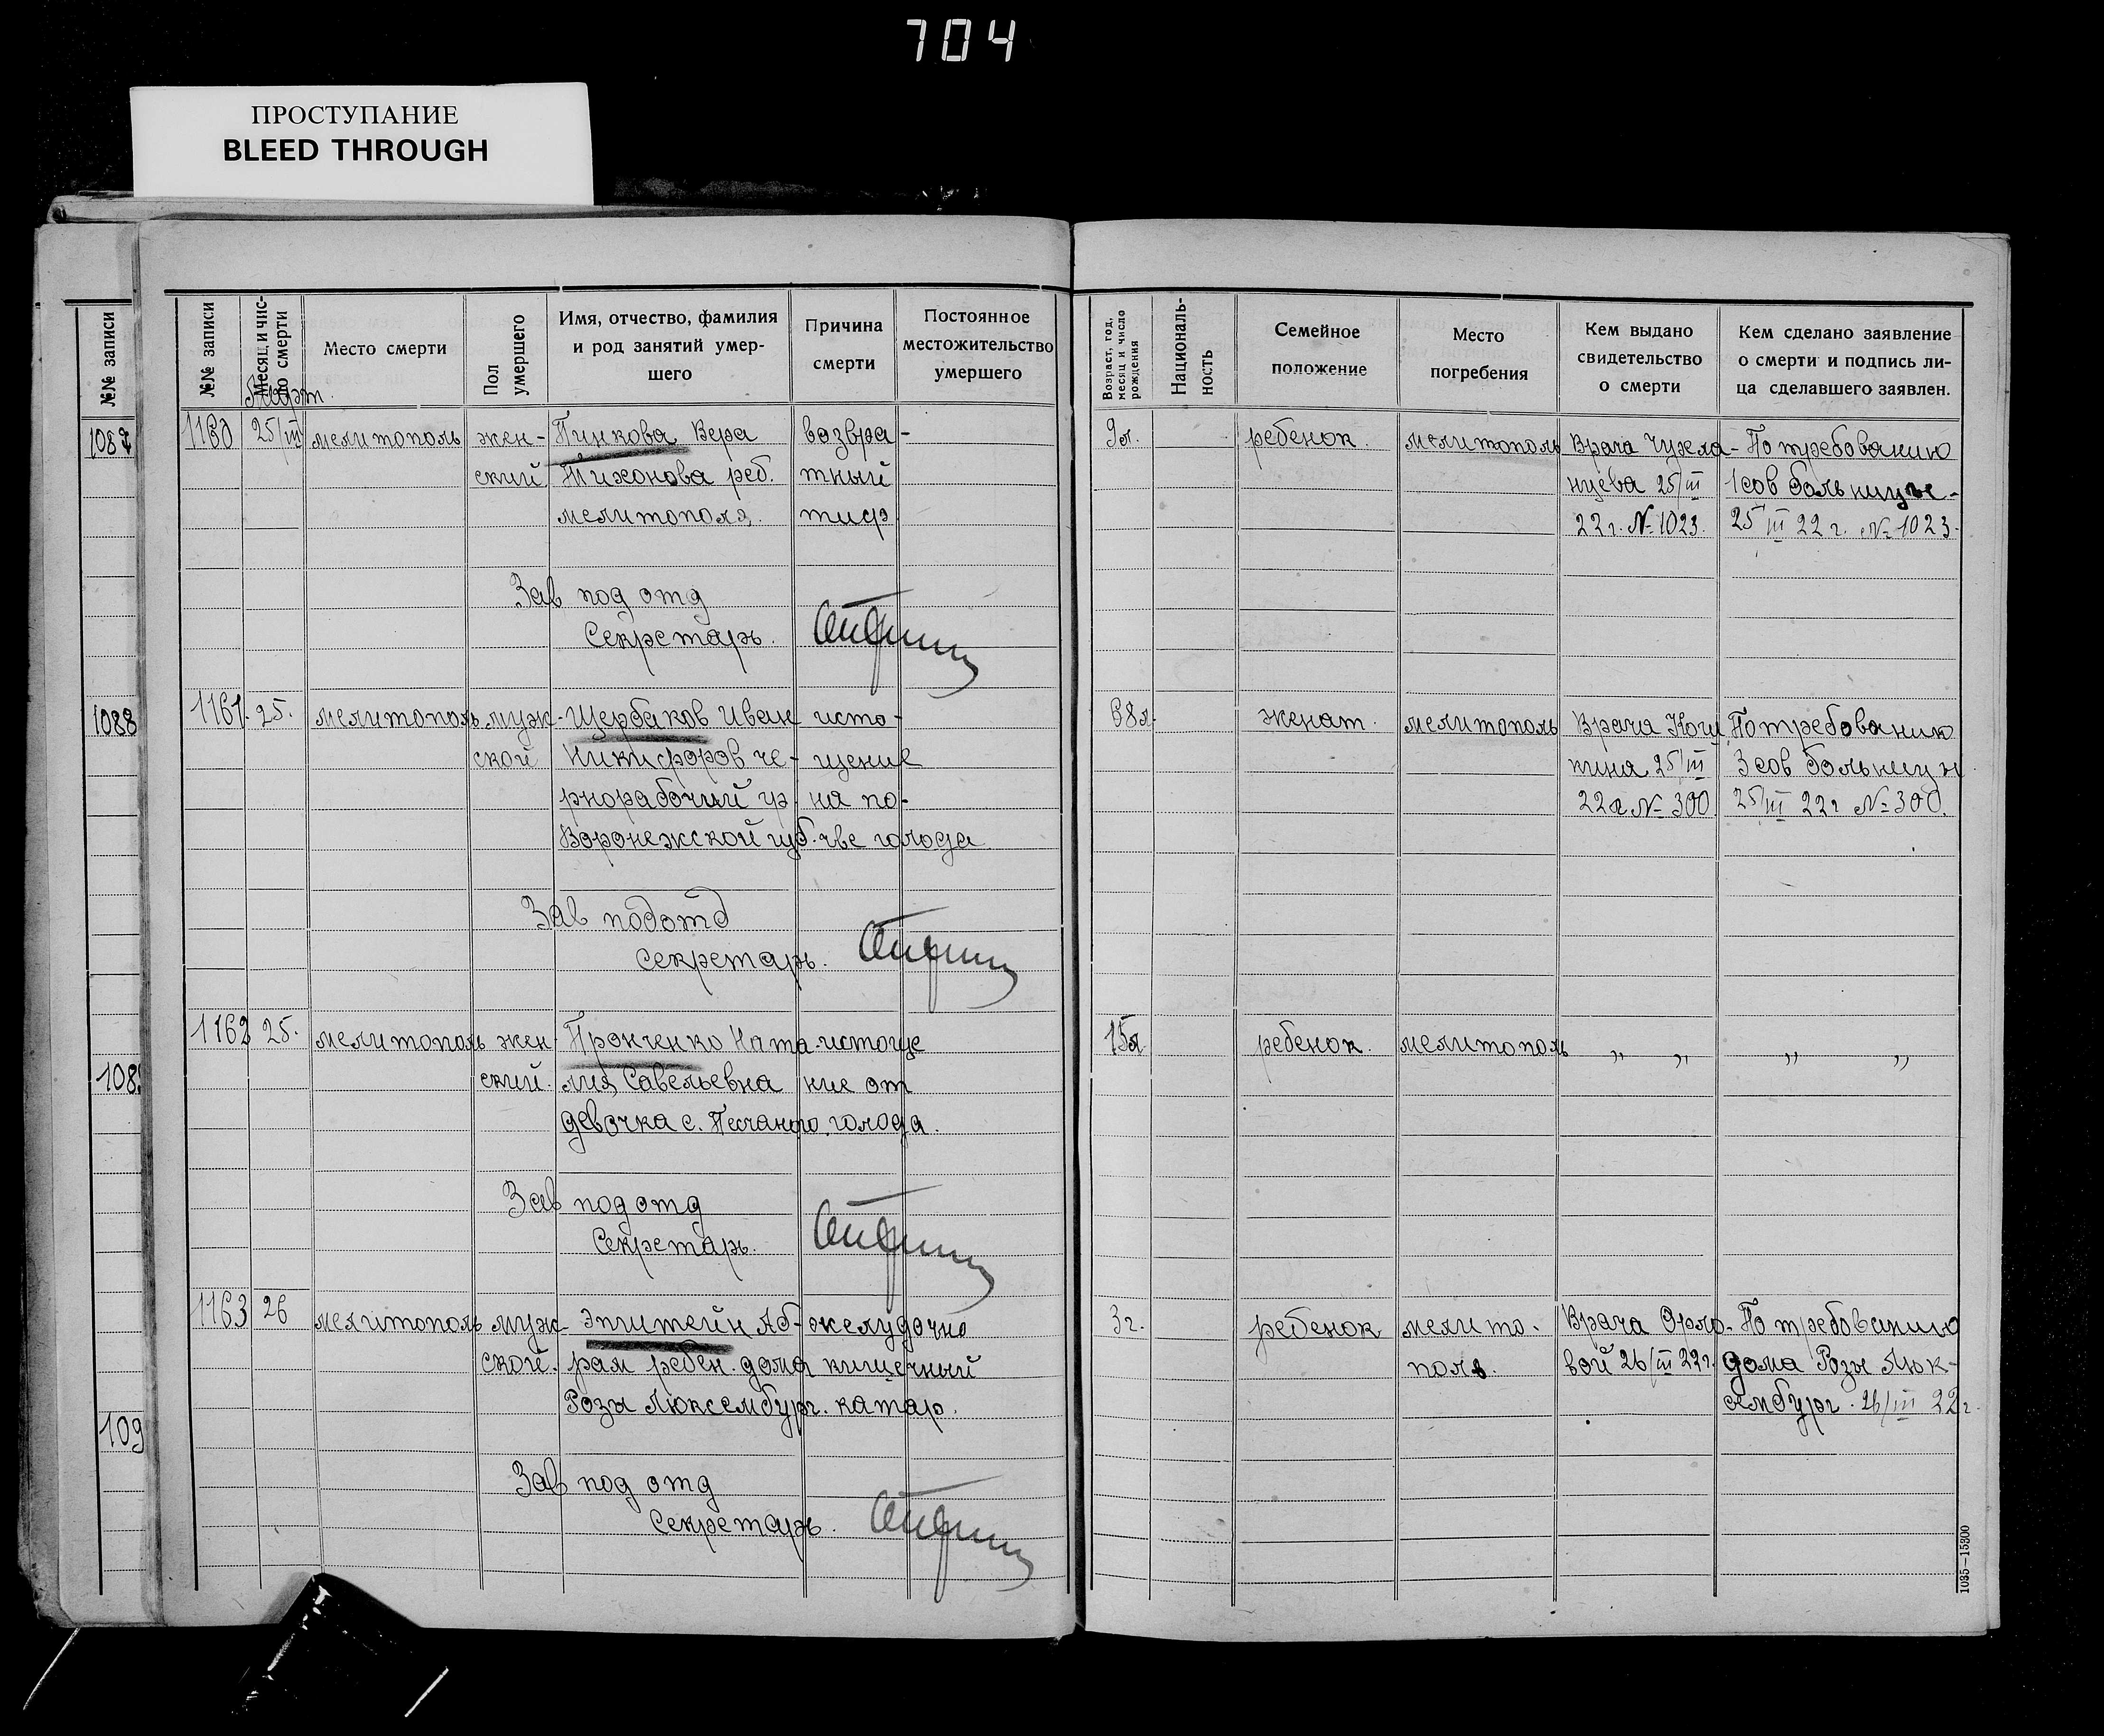 704
ПРОСТУПАНИЕ
BLEED THROUGH
№№ записи
1087
1088
108
109
№№ записи
Месяц и число смерти
Место смерти
Пол умершего
Имя, отчество, фамилия и род занятий умершего
Причина смерти
Постоянное местожительство умершего
Возраст, год, месяц и число рождения
Националь-ность
Семейное положение
Место погребения
Кем выдано свидетельство о смерти
Кем сделано заявление о смерти и подпись ли-ца сделавшего заявлен.
Март
1160 25/III мелитополь жен- Пинкова Вера возвра- 9л. ребенок. мелитополь Врача Чухла- По требованию
ский Тихонова реб. тный нцева 25/III 1 сов больнице-
мелитополя. тиф 22г. № 1023. 25/III 22 г. № 1023.
Зав под отд
Секретарь.
1161. 25. мелитополь муж- Щербаков Иван исто- 68л. женат. мелитополь Врача Кочу По требованию
ской Никифоров че- щение кина 25/III 3 сов больницы
рнорабочий гр. на по- 22г № 300. 25/III 22г № 300.
Воронежской губ. чве голода
Зав подотд
Секретарь.
1162 25. мелитополь жен Пронченко Ната- истоще 15л. ребенок. мелитополь „ „ „ „
ский. лия Савельевна ние от
девочка с. Песчаного. голода.
Зав под отд
Секретарь.
1163 26 мелитополь муж- Эпштейн Аб- желудочно 3г. ребенок мелито- Врача Орло- По требованию
ской. рам ребен. дома кишечный поль. вой 26/III 22г. дома Розы Люк-
Розы Люксембург. катар. сембург. 26/III 22г.
Зав под отд
Секретарь.
1035—15300